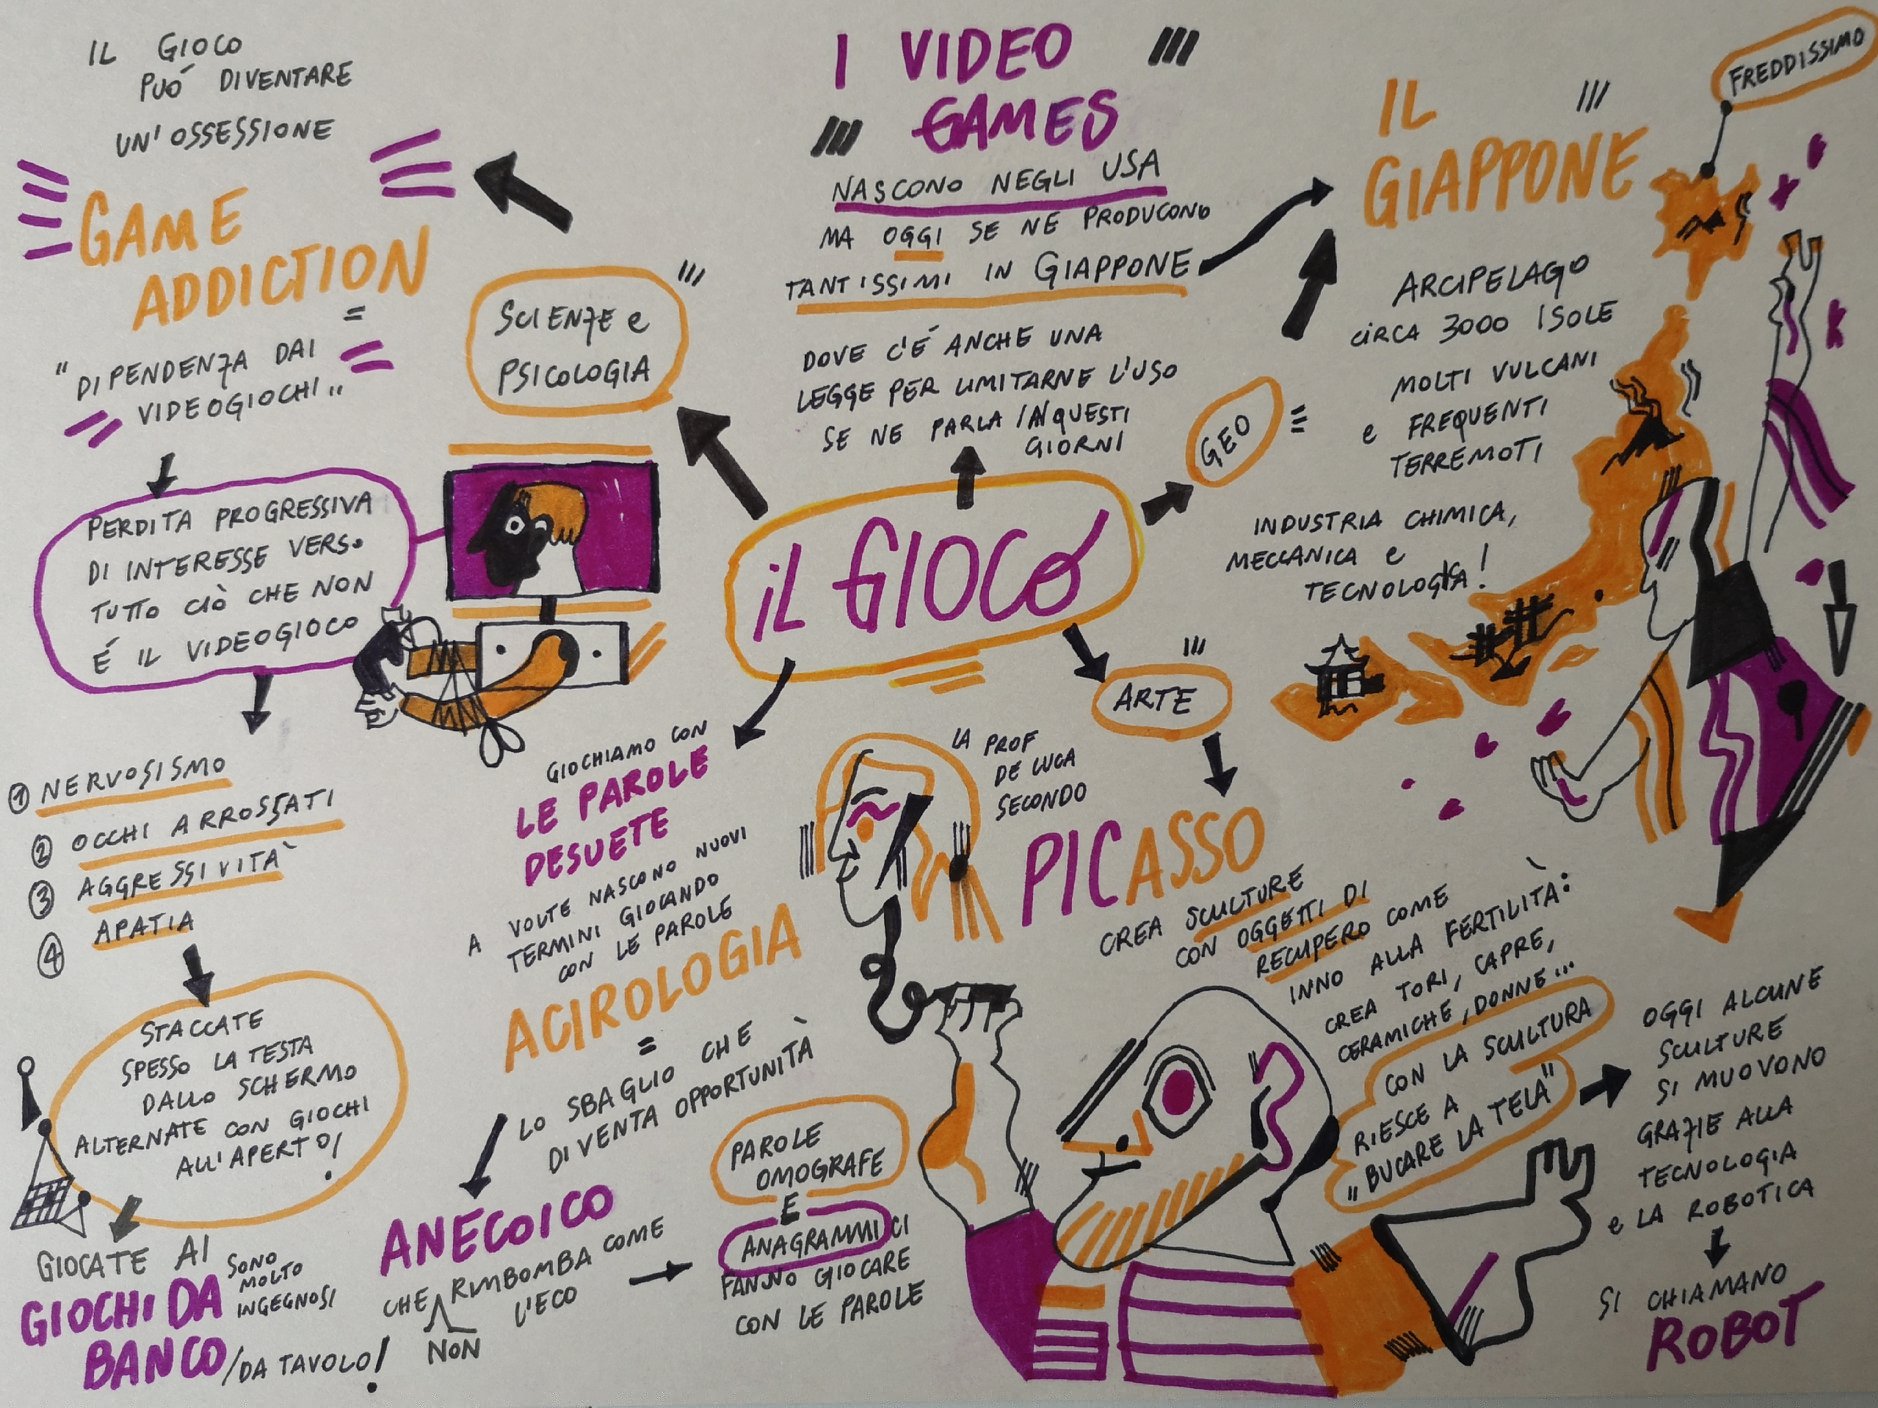 IL GIOCO
PUÓ DIVENTARE
UN'OSSESSIONE
GAME
ADDICTION
=
"DIPENDENZA DAI
VIDEOGIOCHI"
PERDITA PROGRESSIVA
DI INTERESSE VERSO
TUTTO CIÒ CHE NON
É IL VIDEOGIOCO
1 NERVOSISMO
2 OCCHI ARROSSATI
3 AGGRESSIVITÀ
4 APATIA
STACCATE
SPESSO LA TESTA
DALLO SCHERMO
ALTERNATE CON GIOCHI
ALL'APERTO!
GIOCATE AI
GIOCHI DA
BANCO/DA TAVOLO!
SONO
MOLTO
INGEGNOSI
SCIENZE e
PSICOLOGIA
I VIDEO
GAMES
NASCONO NEGLI USA
MA OGGI SE NE PRODUCONO
TANTISSIMI IN GIAPPONE
DOVE C'É ANCHE UNA
LEGGE PER LIMITARNE L'USO
SE NE PARLA IN QUESTI
GIORNI
iL GIOCO
GEO
IL
GIAPPONE
FREDDISSIMO
ARCIPELAGO
CIRCA 3000 ISOLE
MOLTI VULCANI
e FREQUENTI
TERREMOTI
INDUSTRIA CHIMICA,
MECCANICA e
TECNOLOGICA!
GIOCHIAMO CON
LE PAROLE
DESUETE
A VOLTE NASCONO NUOVI
TERMINI GIOCANDO
CON LE PAROLE
ACIROLOGIA
=
LO SBAGLIO CHE
DIVENTA OPPORTUNITÀ
ANECOICO
CHE RIMBOMBA COME
NON
L'ECO
PAROLE
OMOGRAFE
E
ANAGRAMMI CI
FANNO GIOCARE
CON LE PAROLE
ARTE
LA PROF
DE LUCA
SECONDO
PICASSO
CREA SCULTURE
CON OGGETTI DI
RECUPERO COME
INNO ALLA FERTILITÀ:
CREA TORI, CAPRE,
CERAMICHE, DONNE...
CON LA SCULTURA
RIESCE A
"BUCARE LA TELA"
OGGI ALCUNE
SCULTURE
SI MUOVONO
GRAZIE ALLA
TECNOLOGIA
e LA ROBOTICA
SI CHIAMANO
ROBOT